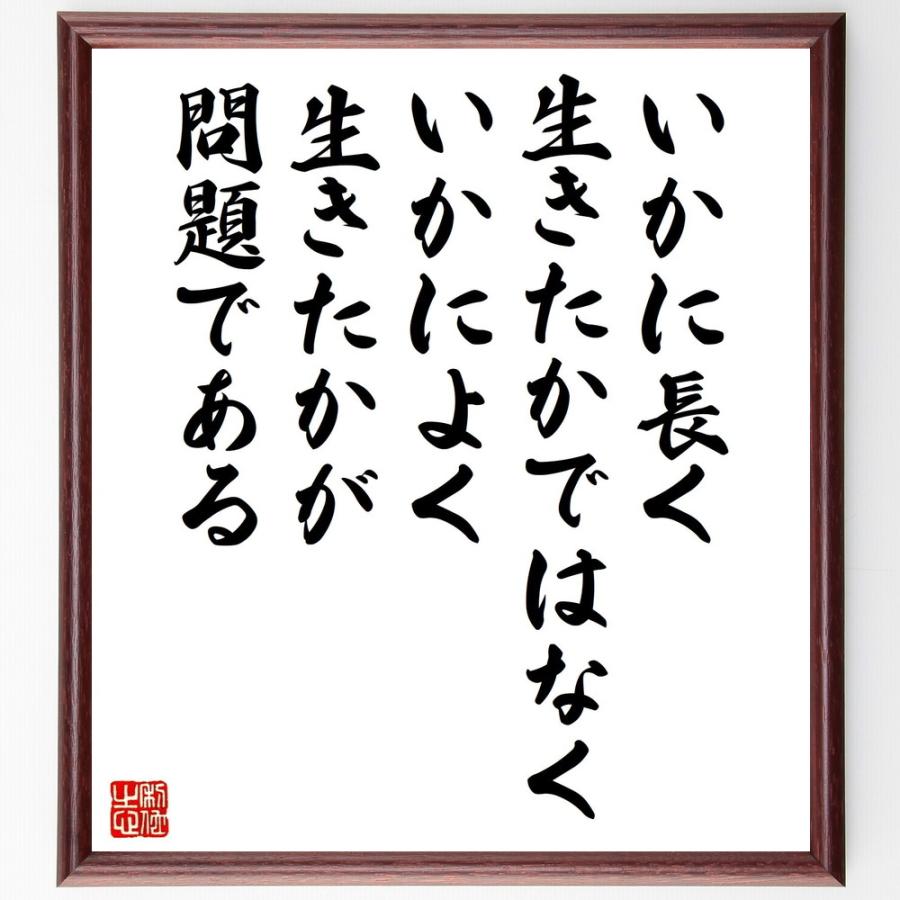 いかに長く
生きたかではなく
いかによく
生きたかが
問題である